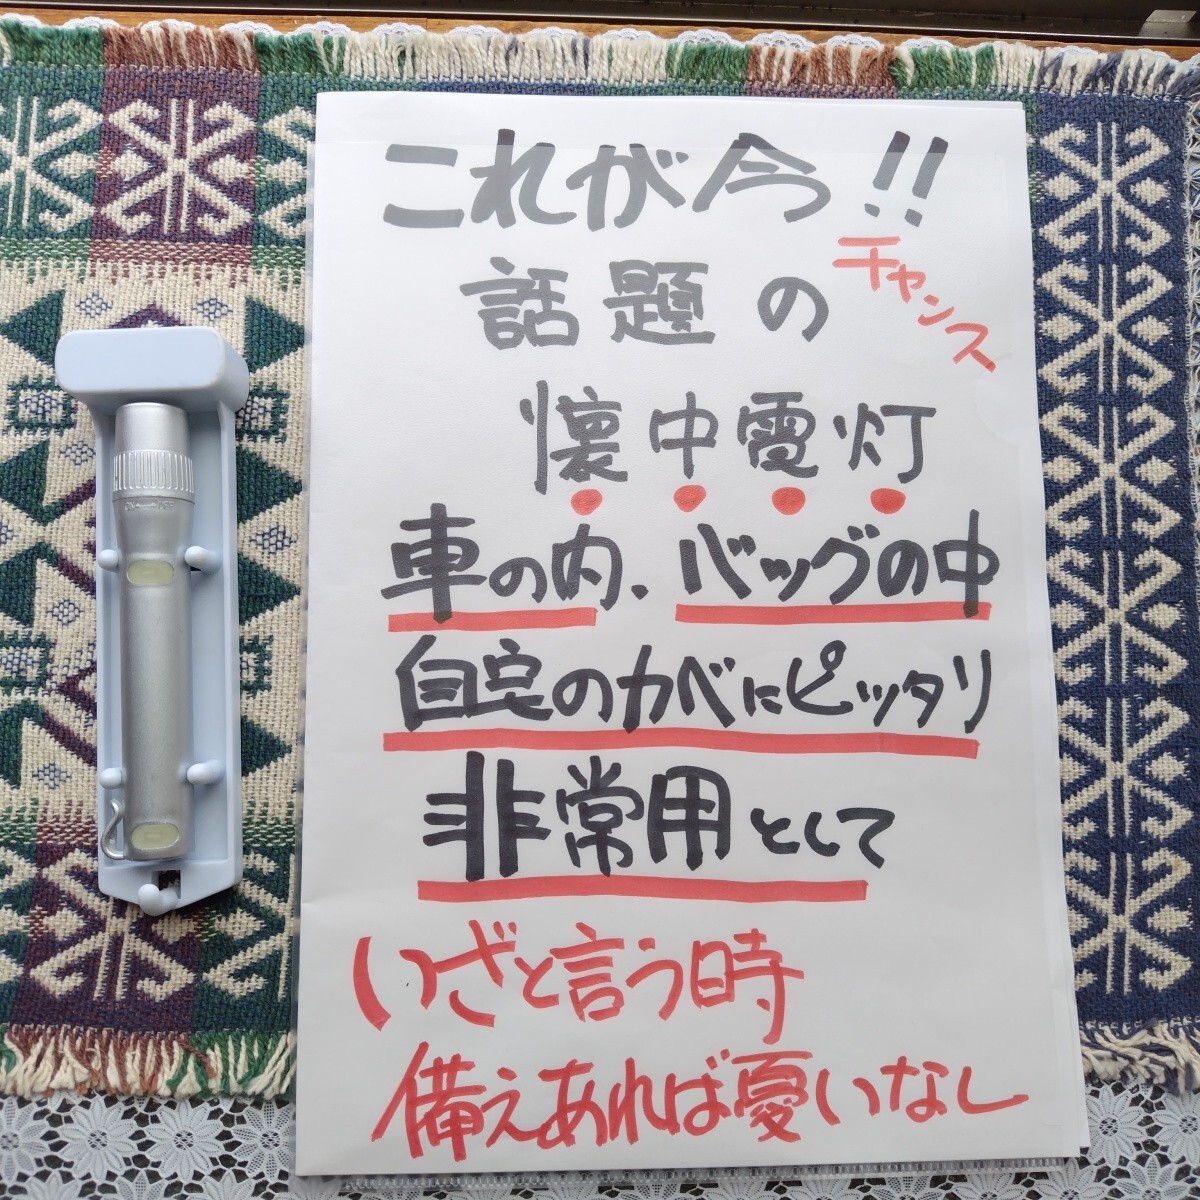 これが今!!
チャンス
話題の
懐中電灯
車の内、バッグの中
自宅のカベにピッタリ
非常用として
いざと言う時
備えあれば憂いなし